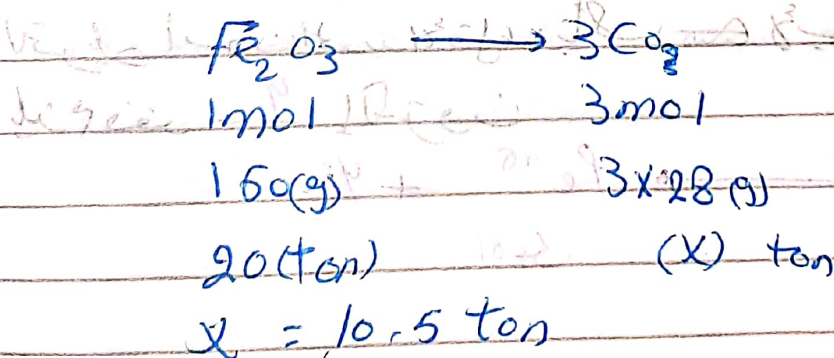 Fe₂O₃ ⟶ 3CO₂
1mol 3mol
160(g) 3×28(g)
20(ton) (X) ton
X = 10.5 ton